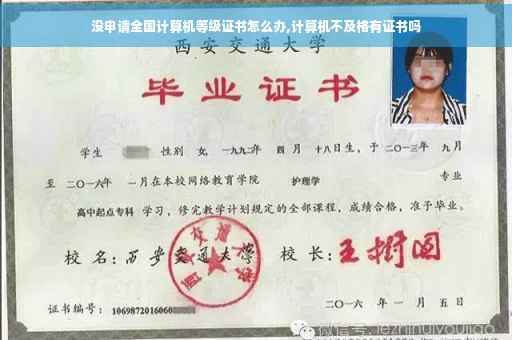 没申请全国计算机等级证书怎么办,计算机不及格有证书吗
西安交通大学
毕业证书
学生 性别 女,一九九二年 四 月 十八日生,于二〇一三年 九月
至 二〇一六年 一月在本校网络教育学院 护理学 专业
高中起点专科 学习,修完教学计划规定的全部课程,成绩合格,准予毕业。
校 名:西安交通大学 校 长:王树国
西安交通大学
证书编号: 1069872016060
二〇一六 年 一 月 五 日
微信号: jiezhihuiyoujiao